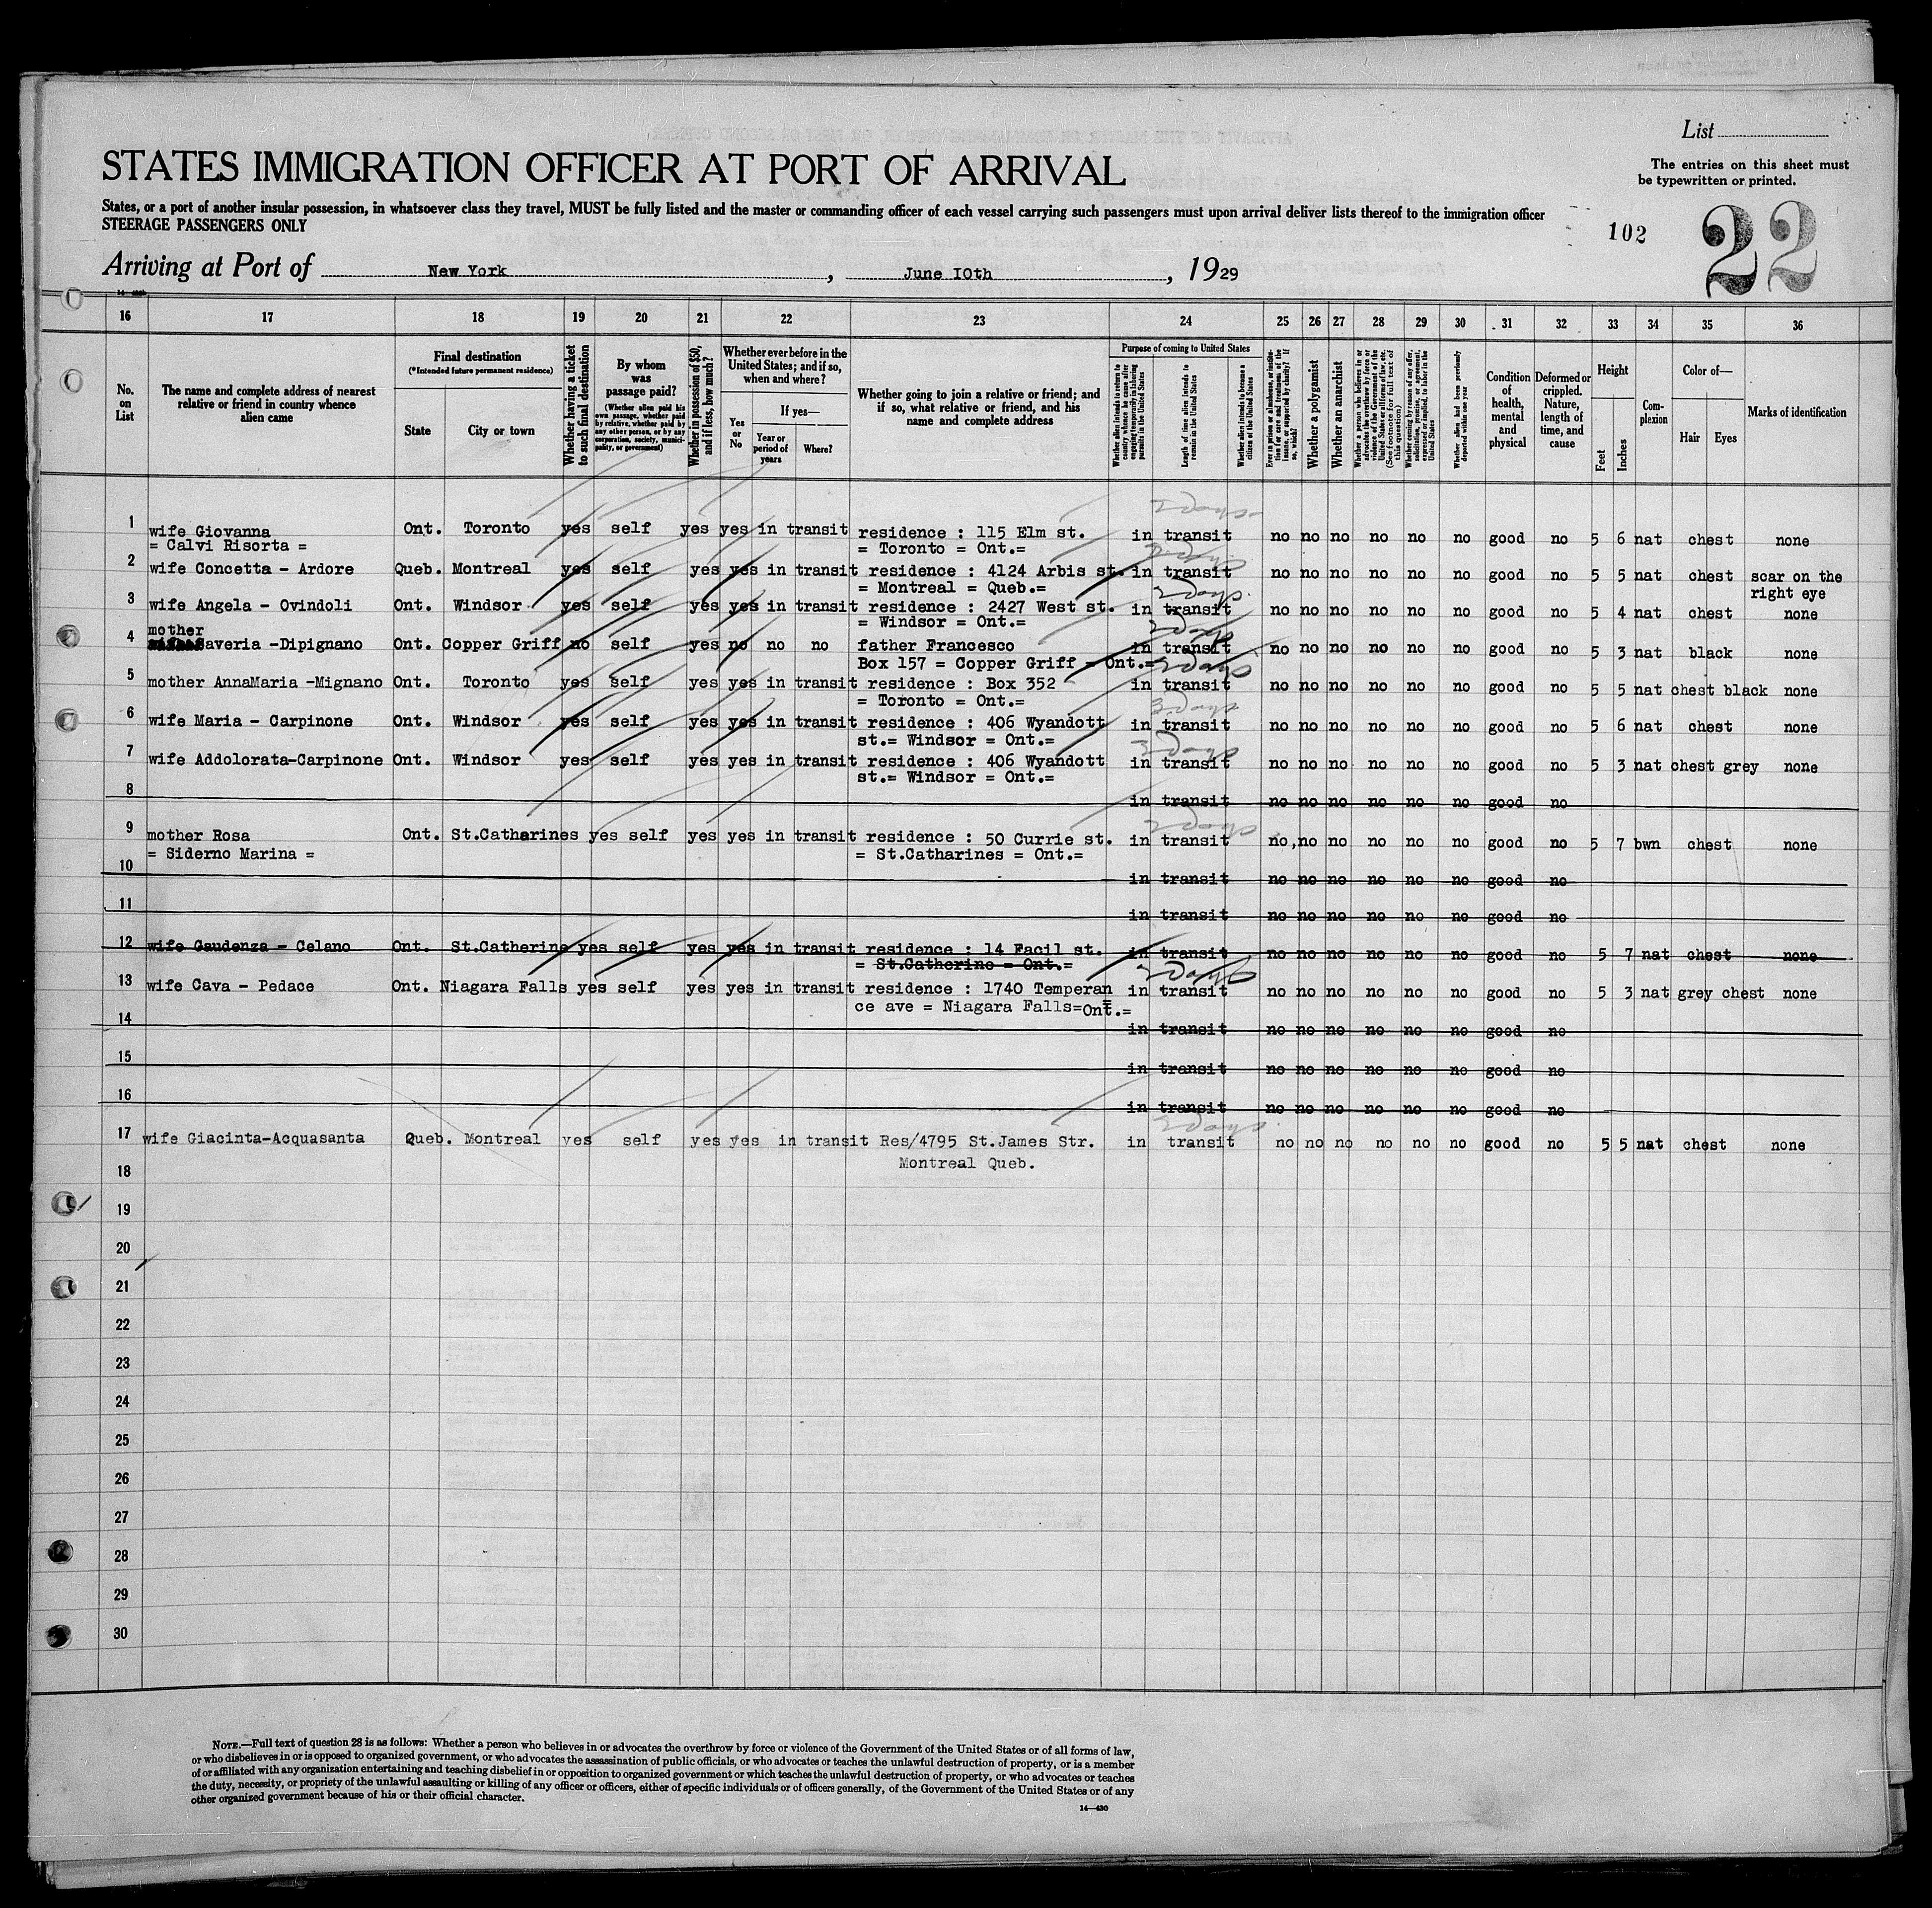 List
STATES IMMIGRATION OFFICER AT PORT OF ARRIVAL
The entries on this sheet must
be typewritten or printed.
States, or a port of another insular possession, in whatsoever class they travel, MUST be fully listed and the master or commanding officer of each vessel carrying such passengers must upon arrival deliver lists thereof to the immigration officer
STEERAGE PASSENGERS ONLY
102
22
Arriving at Port of New York, June 10th, 1929
16 17 18 19 20 21 22 23 24 25 26 27 28 29 30 31 32 33 34 35 36
No. on List
The name and complete address of nearest relative or friend in country whence alien came
Final destination
(*Intended future permanent residence)
State
City or town
Whether having a ticket to such final destination
By whom was passage paid?
(Whether alien paid his own passage, whether paid by relative, whether paid by any other person, or by any corporation, society, municipality, or government)
Whether in possession of $50, and if less, how much?
Whether ever before in the United States; and if so, when and where?
Yes or No
If yes—
Year or period of years
Where?
Whether going to join a relative or friend; and if so, what relative or friend, and his name and complete address
Purpose of coming to United States
Whether alien intends to return to country whence he came after engaging temporarily in laboring pursuits in the United States
Length of time alien intends to remain in the United States
Whether alien intends to become a citizen of the United States
Ever in prison or almshouse, or institution for care and treatment of the insane, or supported by charity? If so, which?
Whether a polygamist
Whether an anarchist
Whether a person who believes in or advocates the overthrow by force or violence of the Government of the United States or all forms of law, etc. (See footnote for full text of this question)
Whether coming by reason of any offer, solicitation, promise, or agreement, expressed or implied, to labor in the United States
Whether alien had been previously deported within one year
Condition of health, mental and physical
Deformed or crippled. Nature, length of time, and cause
Height
Feet
Inches
Complexion
Color of—
Hair
Eyes
Marks of identification
1 wife Giovanna Ont. Toronto yes self yes yes in transit residence : 115 Elm st. in transit no no no no no no good no 5 6 nat chest none
= Calvi Risorta = = Toronto = Ont.=
2 wife Concetta - Ardore Queb. Montreal yes self yes yes in transit residence : 4124 Arbis st. in transit no no no no no no good no 5 5 nat chest scar on the
= Montreal = Queb.= right eye
3 wife Angela - Ovindoli Ont. Windsor yes self yes yes in transit residence : 2427 West st. in transit no no no no no no good no 5 4 nat chest none
mother = Windsor = Ont.=
4 Saveria -Dipignano Ont. Copper Griff no self yes no no no father Francesco in transit no no no no no no good no 5 3 nat black none
Box 157 = Copper Griff = Ont.= 2 days
5 mother AnnaMaria -Mignano Ont. Toronto yes self yes yes in transit residence : Box 352 in transit no no no no no no good no 5 5 nat chest black none
= Toronto = Ont.=
6 wife Maria - Carpinone Ont. Windsor yes self yes yes in transit residence : 406 Wyandott in transit no no no no no no good no 5 6 nat chest none
st.= Windsor = Ont.=
7 wife Addolorata-Carpinone Ont. Windsor yes self yes yes in transit residence : 406 Wyandott in transit no no no no no no good no 5 3 nat chest grey none
st.= Windsor = Ont.=
8 in transit no no no no no no good no
9 mother Rosa Ont. St.Catharines yes self yes yes in transit residence : 50 Currie st. in transit no, no no no no no good no 5 7 bwn chest none
= Siderno Marina = = St.Catharines = Ont.=
10 in transit no no no no no no good no
11 in transit no no no no no no good no
12 wife Gaudenza - Celano Ont. St.Catherine yes self yes yes in transit residence : 14 Facil st. in transit no no no no no no good no 5 7 nat chest none
= St.Catherine = Ont.=
2 days
13 wife Cava - Pedace Ont. Niagara Falls yes self yes yes in transit residence : 1740 Temperan in transit no no no no no no good no 5 3 nat grey chest none
ce ave = Niagara Falls=Ont.=
14 in transit no no no no no no good no
15 in transit no no no no no no good no
16 in transit no no no no no no good no
2 days
17 wife Giacinta-Acquasanta Queb. Montreal yes self yes yes in transit Res/4795 St.James Str. in transit no no no no no no good no 5 5 nat chest none
Montreal Queb.
18
19
20
21
22
23
24
25
26
27
28
29
30
NOTE.—Full text of question 28 is as follows: Whether a person who believes in or advocates the overthrow by force or violence of the Government of the United States or of all forms of law,
or who disbelieves in or is opposed to organized government, or who advocates the assassination of public officials, or who advocates or teaches the unlawful destruction of property, or is a member
of or affiliated with any organization entertaining and teaching disbelief in or opposition to organized government or which teaches the unlawful destruction of property, or who advocates or teaches
the duty, necessity, or propriety of the unlawful assaulting or killing of any officer or officers, either of specific individuals or of officers generally, of the Government of the United States or of any
other organized government because of his or their official character.
14—430